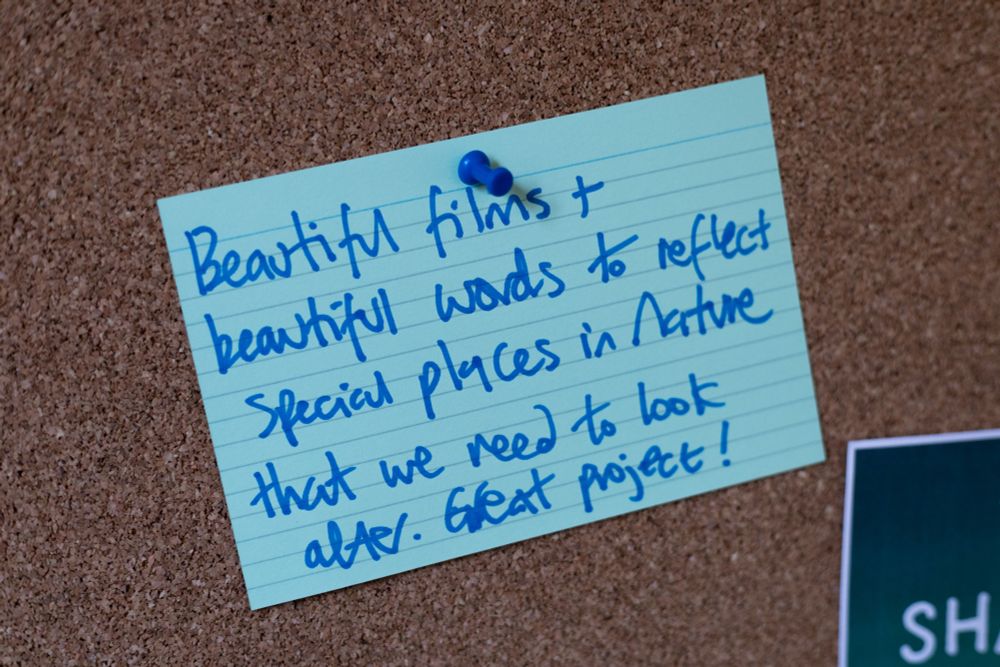 Beautiful films +
beautiful words to reflect
special places in Nature
that we need to look
after. Great project!
SHA